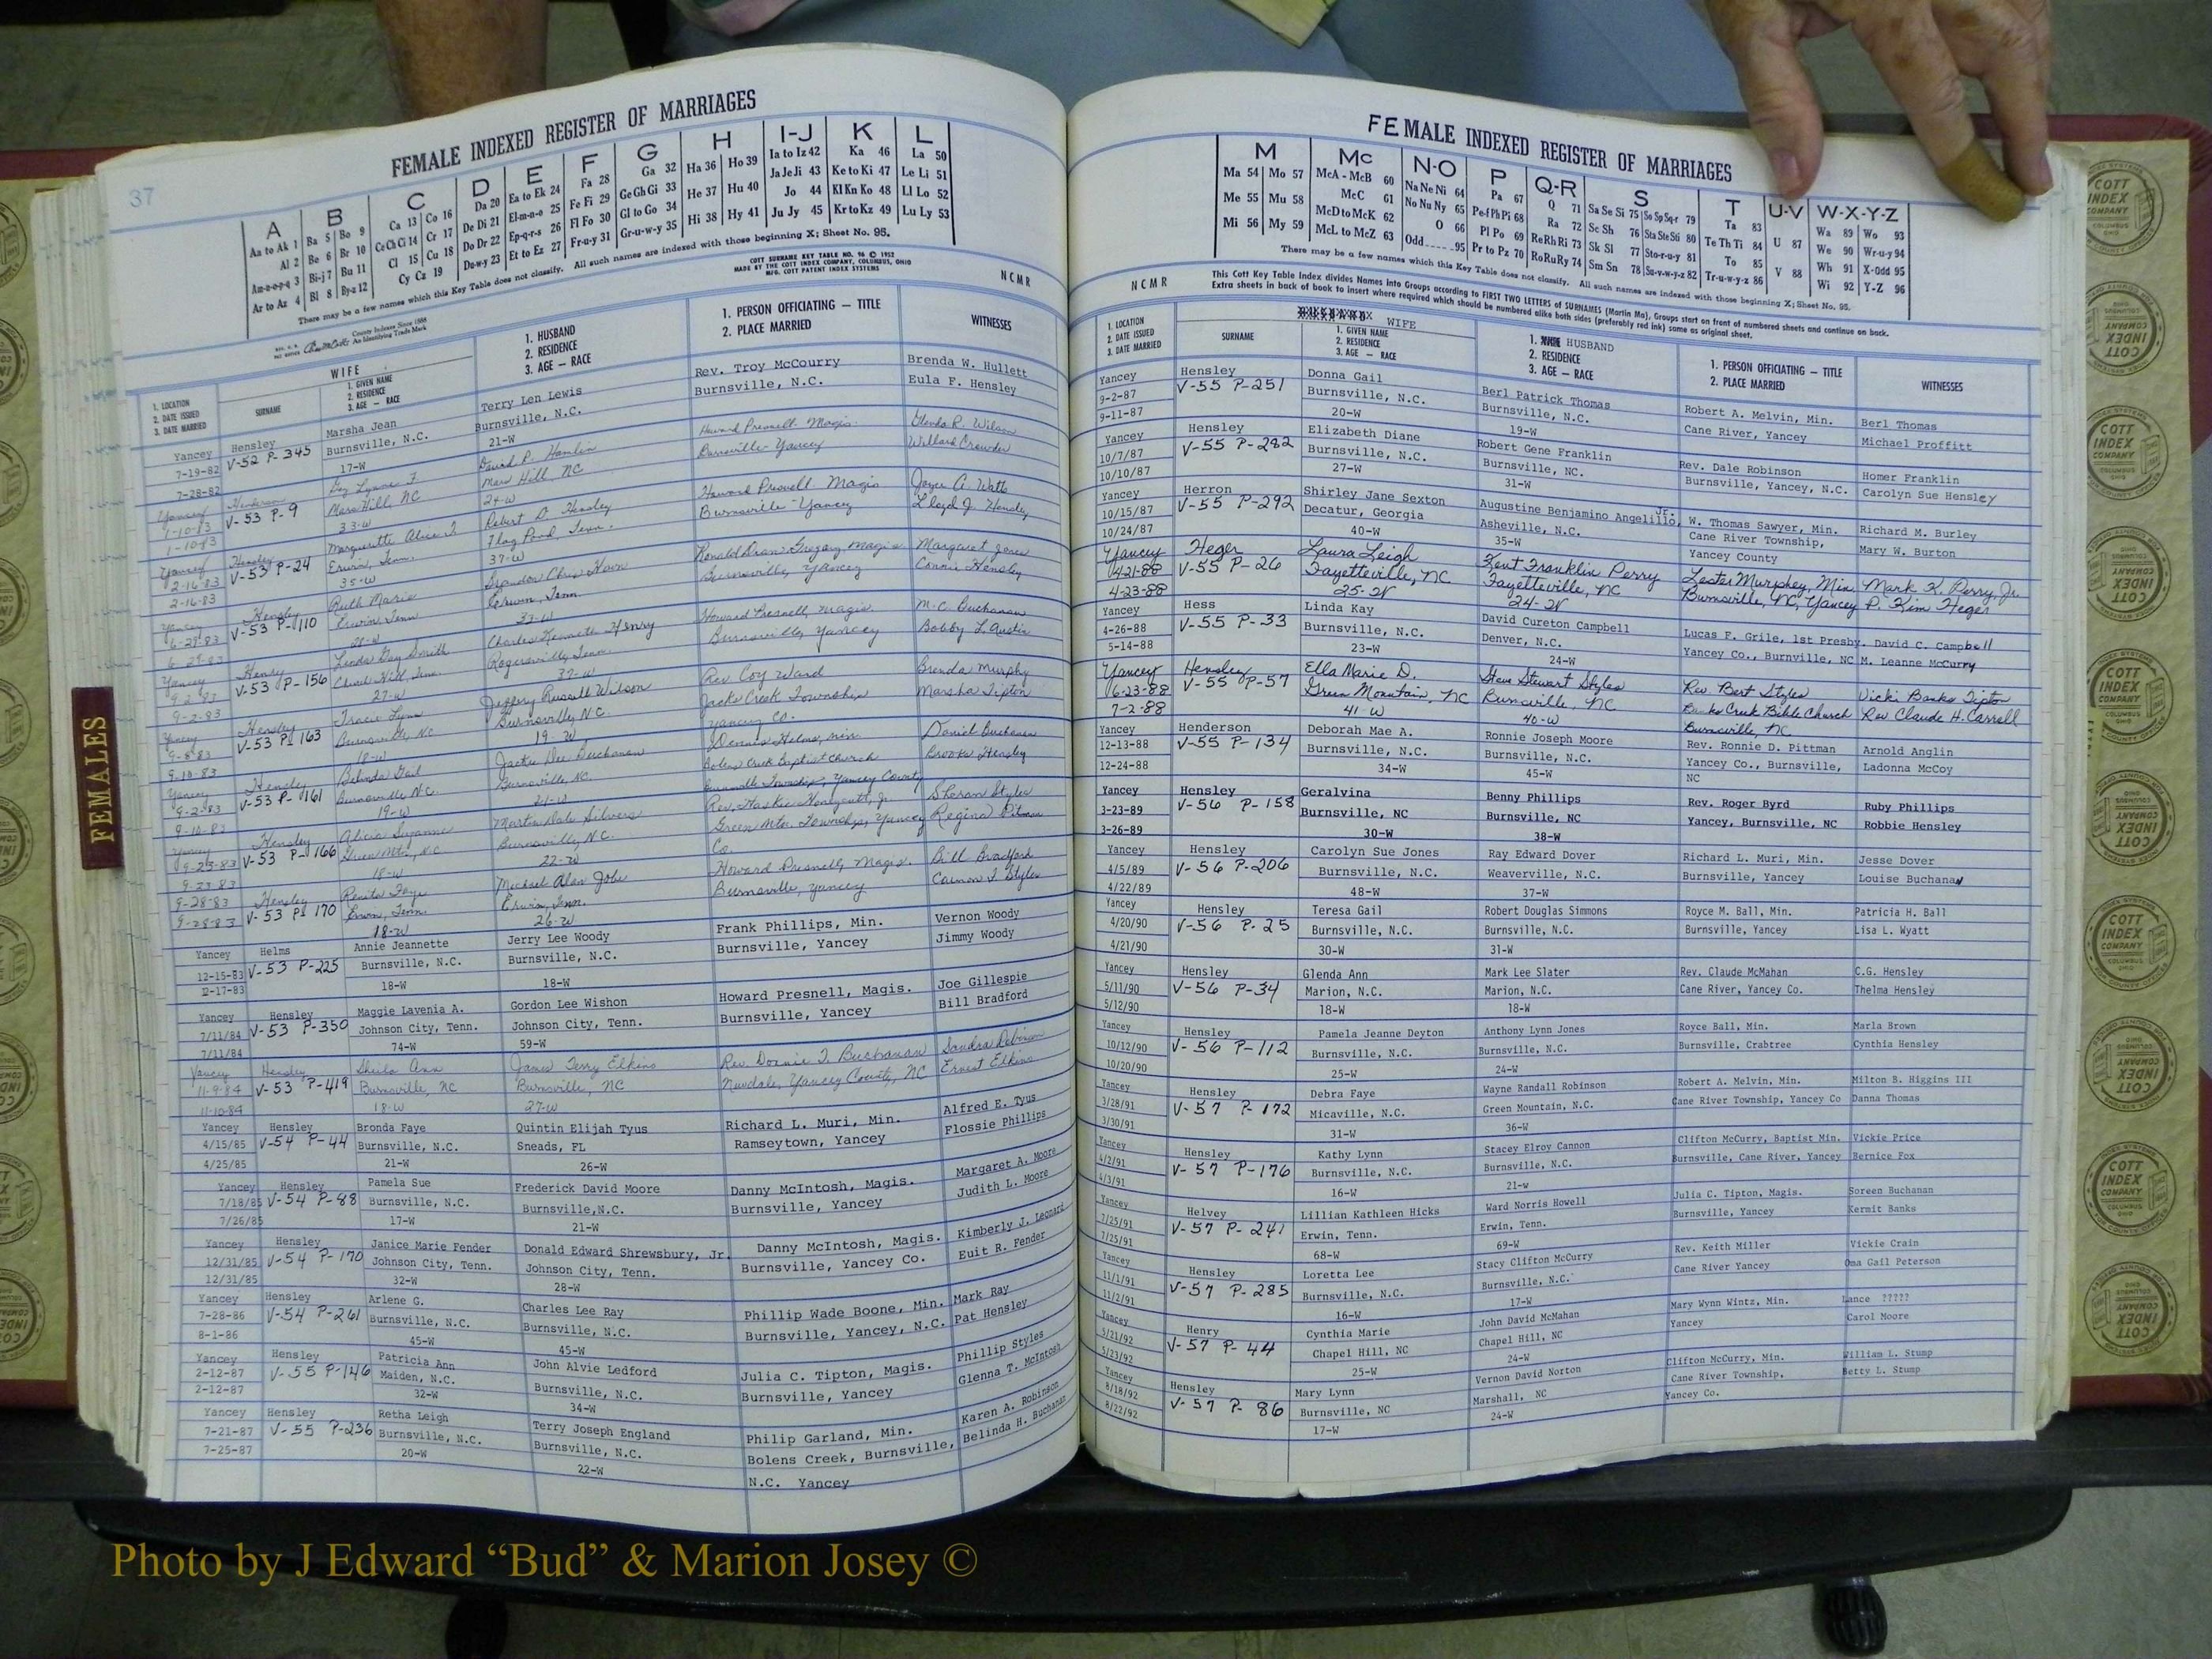 37
FEMALE INDEXED REGISTER OF MARRIAGES
A B C D E F G H I-J K L
Aa to Ak 1 Ba 5 Bo 9 Ca 13 Co 16 Da 20 Ea to Ek 24 Fa 28 Ga 32 Ha 36 Ho 39 Ia to Iz 42 Ka 46 La 50
Al 2 Be 6 Br 10 Ce Ch Ci 14 Cr 17 De Di 21 El-m-n-o 25 Fe Fi 29 Ge Gh Gi 33 He 37 Hu 40 Ja Je Ji 43 Ke to Ki 47 Le Li 51
Am-n-o-p-q 3 Bi-j 7 Bu 11 Cl 15 Cu 18 Do Dr 22 Ep-q-r-s 26 Fl Fo 30 Gl to Go 34 Hi 38 Hy 41 Jo 44 Kl Kn Ko 48 Ll Lo 52
Ar to Az 4 Bl 8 By-z 12 Cy Cz 19 Du-w-y 23 Et to Ez 27 Fr-u-y 31 Gr-u-w-y 35 Ju Jy 45 Kr to Kz 49 Lu Ly 53
There may be a few names which this Key Table does not classify. All such names are indexed with those beginning X; Sheet No. 95.
County Indexes Since 1888
An Identifying Trade Mark
COTT SURNAME KEY TABLE NO. 96 © 1952
MADE BY THE COTT INDEX COMPANY, COLUMBUS, OHIO
MFG. COTT PATENT INDEX SYSTEMS
NCMR
1. LOCATION
2. DATE ISSUED
3. DATE MARRIED
WIFE
SURNAME
1. GIVEN NAME
2. RESIDENCE
3. AGE — RACE
1. HUSBAND
2. RESIDENCE
3. AGE — RACE
1. PERSON OFFICIATING — TITLE
2. PLACE MARRIED
WITNESSES
Yancey Hensley Marsha Jean Terry Len Lewis Rev. Troy McCourry Brenda W. Hullett
7-19-82 V-52 P-345 Burnsville, N.C. Burnsville, N.C. Burnsville, N.C. Eula F. Hensley
7-28-82 17-W 21-W
Yancey Henderson Gay Lynne F. David P. Hamlin Howard Presnell Magis. Glenda R. Wilson
1-10-83 V-53 P-9 Mars Hill, NC Mars Hill, NC Burnsville-Yancey Willard Crowder
1-10-83 33-W 24-W
Yancey Hensley Marguerite Alice Robert D. Hensley Howard Presnell Magis Joyce A. Watts
2-16-83 V-53 P-24 Erwin, Tenn. Flag Pond, Tenn. Burnsville-Yancey Lloyd J. Hensley
2-16-83 35-W 37-W
Yancey Hensley Ruth Marie Brandon Chris Ronald Dean Gregory Magis Margaret Jones
6-29-83 V-53 P-110 Erwin, Tenn Erwin, Tenn. Burnsville, Yancey Connie Hensley
6-29-83
Yancey Henry Linda Gay Smith Charles Kenneth Henry Howard Presnell, Magis. M.C. Buchanan
9-2-83 V-53 P-156 Church Hill, Tenn. Rogersville, Tenn. Burnsville, Yancey Bobby L. Austin
9-2-83 27-W 37-W
Yancey Hensley Tracie Lynn Jeffery Russell Wilson Rev Coy Ward Brenda Murphy
9-8-83 V-53 P-163 Burnsville, NC Burnsville, N.C. Jacks Creek Township Marsha Tipton
9-10-83 18-W 19-W Yancey Co.
Yancey Hensley Belinda Gail Jackie Dee Buchanan Dennis Helms, Min Daniel Buchanan
9-2-83 V-53 P-161 Burnsville N.C. Burnsville, NC. Bolens Creek Baptist Church Brooks Hensley
9-10-83 19-W 21-W Burnsville Township, Yancey County
Yancey Hensley Alicia Suzanne Martin Dale Silvers Sheran Styles
9-23-83 V-53 P-166 Green Mtn., N.C. Burnsville, N.C. Green Mtn. Township, Yancey Regina Pitman
9-23-83 18-W 22-W Co.
9-28-83 Hensley Renita Faye Michael Alan Jobe Howard Presnell, Magis. Bill Bradford
9-28-83 V-53 P-170 Erwin, Tenn. Erwin, Tenn. Burnsville, Yancey Styles
18-W 26-W
Yancey Helms Annie Jeannette Jerry Lee Woody Frank Phillips, Min. Vernon Woody
12-15-83 V-53 P-225 Burnsville, N.C. Burnsville, N.C. Burnsville, Yancey Jimmy Woody
12-17-83 18-W 18-W
Yancey Hensley Maggie Lavenia A. Gordon Lee Wishon Howard Presnell, Magis. Joe Gillespie
7/11/84 V-53 P-350 Johnson City, Tenn. Johnson City, Tenn. Burnsville, Yancey Bill Bradford
7/11/84 74-W 59-W
Yancey Hensley Sheila Ann James Terry Elkins Rev. Donnie T. Buchanan Sandra Robinson
11-9-84 V-53 P-419 Burnsville, NC Burnsville, NC Newdale, Yancey County, NC Ernest Elkins
11-10-84 18-W 27-W
Yancey Hensley Bronda Faye Quintin Elijah Tyus Richard L. Muri, Min. Alfred E. Tyus
4/15/85 V-54 P-44 Burnsville, N.C. Sneads, FL Ramseytown, Yancey Flossie Phillips
4/25/85 21-W 26-W
Yancey Hensley Pamela Sue Frederick David Moore Danny McIntosh, Magis. Margaret A. Moore
7/18/85 V-54 P-88 Burnsville, N.C. Burnsville,N.C. Burnsville, Yancey Judith L. Moore
7/26/85 17-W 21-W
Yancey Hensley Janice Marie Fender Donald Edward Shrewsbury, Jr. Danny McIntosh, Magis. Kimberly J. Leonard
12/31/85 V-54 P-170 Johnson City, Tenn. Johnson City, Tenn. Burnsville, Yancey Co. Euit R. Fender
12/31/85 32-W 28-W
Yancey Hensley Arlene G. Charles Lee Ray Phillip Wade Boone, Min. Mark Ray
7-28-86 V-54 P-261 Burnsville, N.C. Burnsville, N.C. Burnsville, Yancey, N.C. Pat Hensley
8-1-86 45-W 45-W
Yancey Hensley Patricia Ann John Alvie Ledford Julia C. Tipton, Magis. Phillip Styles
2-12-87 V-55 P-146 Maiden, N.C. Burnsville, N.C. Burnsville, Yancey Glenna T. McIntosh
2-12-87 32-W 34-W
Yancey Hensley Retha Leigh Terry Joseph England Philip Garland, Min. Karen A. Robinson
7-21-87 V-55 P-236 Burnsville, N.C. Burnsville, N.C. Bolens Creek, Burnsville, Belinda H. Buchanan
7-25-87 20-W 22-W N.C. Yancey
FEMALE INDEXED REGISTER OF MARRIAGES
M Mc N-O P Q-R S T U-V W-X-Y-Z
Ma 54 Mo 57 McA - McB 60 Na Ne Ni 64 Pa 67 Q 71 Sa Se Si 75 So Sp Sq-r 79 Ta 83 U 87 Wa 89 Wo 93
Me 55 Mu 58 McC 61 No Nu Ny 65 Pe-f Ph Pi 68 Ra 72 Sc Sh 76 Sta Ste Sti 80 Te Th Ti 84 V 88 We 90 Wr-u-y 94
Mi 56 My 59 McD to McK 62 O 66 Pl Po 69 Re Rh Ri 73 Sk Sl 77 Sto-r-u-y 81 To 85 Wh 91 X-Odd 95
McL to McZ 63 Odd 95 Pr to Pz 70 Ro Ru Ry 74 Sm Sn 78 Su-v-w-y-z 82 Tr-u-w-y-z 86 Wi 92 Y-Z 96
There may be a few names which this Key Table does not classify. All such names are indexed with those beginning X; Sheet No. 95.
NCMR
This Cott Key Table Index divides Names into Groups according to FIRST TWO LETTERS of SURNAMES (Martin Ma). Groups start on front of numbered sheets and continue on back.
Extra sheets in back of book to insert where required which should be numbered alike both sides (preferably red ink) same as original sheet.
1. LOCATION
2. DATE ISSUED
3. DATE MARRIED
SURNAME
WIFE
1. GIVEN NAME
2. RESIDENCE
3. AGE — RACE
1. HUSBAND
2. RESIDENCE
3. AGE — RACE
1. PERSON OFFICIATING — TITLE
2. PLACE MARRIED
WITNESSES
Yancey Hensley Donna Gail Berl Patrick Thomas Robert A. Melvin, Min. Berl Thomas
9-2-87 V-55 P-251 Burnsville, N.C. Burnsville, N.C. Cane River, Yancey Michael Proffitt
9-11-87 20-W 19-W
Yancey Hensley Elizabeth Diane Robert Gene Franklin Rev. Dale Robinson Homer Franklin
10/7/87 V-55 P-282 Burnsville, N.C. Burnsville, NC. Burnsville, Yancey, N.C. Carolyn Sue Hensley
10/10/87 27-W 31-W
Yancey Herron Shirley Jane Sexton Augustine Benjamino Angelillo, Jr. W. Thomas Sawyer, Min. Richard M. Burley
10/15/87 V-55 P-292 Decatur, Georgia Asheville, N.C. Cane River Township, Mary W. Burton
10/24/87 40-W 35-W Yancey County
Yancey Heger Laura Leigh Kent Franklin Perry Lester Murphey, Min Mark K. Perry, Jr.
4-21-88 V-55 P-26 Fayetteville, NC Fayetteville, NC Burnsville, NC, Yancey P. Kim Heger
4-23-88 25-W 24-W
Yancey Hess Linda Kay David Cureton Campbell Lucas F. Grile, 1st Presby. David C. Campbell
4-26-88 V-55 P-33 Burnsville, N.C. Denver, N.C. Yancey Co., Burnsville, NC M. Leanne McCurry
5-14-88 23-W 24-W
Yancey Hensley Ella Marie D. Steve Stewart Styles Rev. Bert Styles Vicki Banks Tipton
6-23-88 V-55 P-57 Green Mountain, NC Burnsville, NC Banks Creek Bible Church Rev Claude H. Carroll
7-2-88 41-W 40-W Burnsville, NC
Yancey Henderson Deborah Mae A. Ronnie Joseph Moore Rev. Ronnie D. Pittman Arnold Anglin
12-13-88 V-55 P-134 Burnsville, N.C. Burnsville, N.C. Yancey Co., Burnsville, Ladonna McCoy
12-24-88 34-W 45-W NC
Yancey Hensley Geralvina Benny Phillips Rev. Roger Byrd Ruby Phillips
3-23-89 V-56 P-158 Burnsville, NC Burnsville, NC Yancey, Burnsville, NC Robbie Hensley
3-26-89 30-W 38-W
Yancey Hensley Carolyn Sue Jones Ray Edward Dover Richard L. Muri, Min. Jesse Dover
4/5/89 V-56 P-206 Burnsville, N.C. Weaverville, N.C. Burnsville, Yancey Louise Buchanan
4/22/89 48-W 37-W
Yancey Hensley Teresa Gail Robert Douglas Simmons Royce M. Ball, Min. Patricia H. Ball
4/20/90 V-56 P-25 Burnsville, N.C. Burnsville, N.C. Burnsville, Yancey Lisa L. Wyatt
4/21/90 30-W 31-W
Yancey Hensley Glenda Ann Mark Lee Slater Rev. Claude McMahan C.G. Hensley
5/11/90 V-56 P-34 Marion, N.C. Marion, N.C. Cane River, Yancey Co. Thelma Hensley
5/12/90 18-W 18-W
Yancey Hensley Pamela Jeanne Deyton Anthony Lynn Jones Royce Ball, Min. Marla Brown
10/12/90 V-56 P-112 Burnsville, N.C. Burnsville, N.C. Burnsville, Crabtree Cynthia Hensley
10/20/90 25-W 24-W
Yancey Hensley Debra Faye Wayne Randall Robinson Robert A. Melvin, Min. Milton B. Higgins III
3/28/91 V-57 P-172 Micaville, N.C. Green Mountain, N.C. Cane River Township, Yancey Co Danna Thomas
3/30/91 31-W 36-W
Yancey Hensley Kathy Lynn Stacey Elroy Cannon Clifton McCurry, Baptist Min. Vickie Price
4/2/91 V-57 P-176 Burnsville, N.C. Burnsville, N.C. Burnsville, Cane River, Yancey Bernice Fox
4/3/91 16-W 21-W
Yancey Helvey Lillian Kathleen Hicks Ward Norris Howell Julia C. Tipton, Magis. Soreen Buchanan
7/25/91 V-57 P-241 Erwin, Tenn. Erwin, Tenn. Burnsville, Yancey Kermit Banks
7/25/91 68-W 69-W
Yancey Hensley Loretta Lee Stacy Clifton McCurry Rev. Keith Miller Vickie Crain
11/1/91 V-57 P-285 Burnsville, N.C. Burnsville, N.C. Cane River Yancey Oma Gail Peterson
11/2/91 16-W 17-W
Yancey Henry Cynthia Marie John David McMahan Mary Wynn Wintz, Min. Lance ?????
5/21/92 V-57 P-44 Chapel Hill, NC Chapel Hill, NC Yancey Carol Moore
5/23/92 25-W 24-W
Yancey Hensley Mary Lynn Vernon David Norton Clifton McCurry, Min. William L. Stump
8/18/92 V-57 P-86 Burnsville, NC Marshall, NC Cane River Township, Betty L. Stump
8/22/92 17-W 24-W Yancey Co.
FEMALES
COTT INDEX COMPANY COLUMBUS OHIO
Photo by J Edward “Bud” & Marion Josey ©